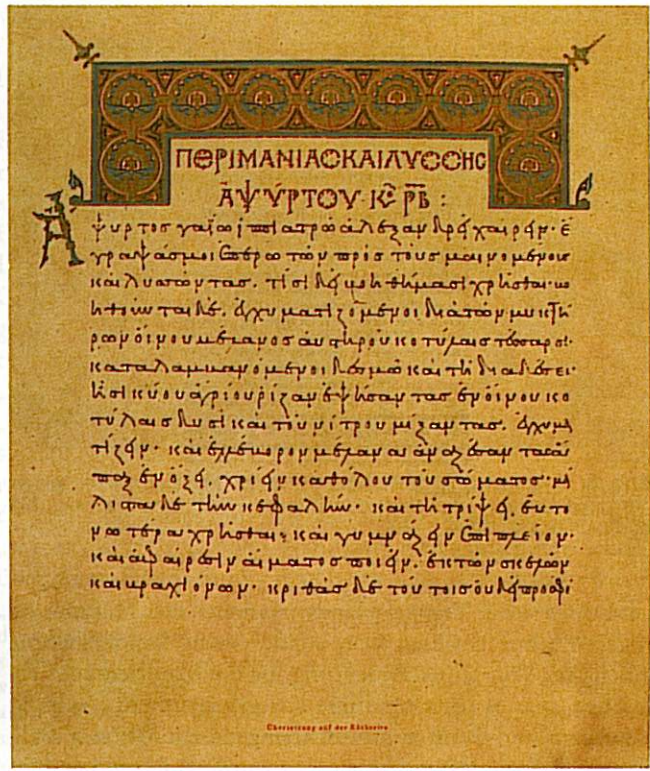 ΠΕΡΙ ΜΑΝΙΑΣ ΚΑΙ ΛΥΣΣΗΣ
ἈΨΎΡΤΟΥ· ΚΕ ΡΒ :
Ἄψυρτος γαΐωι ἱπιατρῶ ἀλεξανδρεῖ χαίρειν· ἔ
γραψάς μοι ἐπερωτῶν πρὸς τοὺς μαινομένους
καὶ λυσῶντας. τίσι δεῖ βοηθήμασι χρῆσθαι· βο
ηθοῦνται δὲ. ἐγχυματιζόμενοι διὰ τῶν μυκτή
ρων οἴνου μέλανος αὐστηροῦ κοτύλαις τέσσαρσι·
καταλαμβανόμενοι δεσμῶ καὶ τῆ διαδέσει·
ἢ σικύου ἀγρίου ῥίζαν ἑψήσαντας ἐν οἴνου κο
τύλαις δυσὶ καὶ τοῦ νίτρου μίξαντας. ἐγχυμα
τίζειν· καὶ ἐλλέβορον μέλανα
ἐν ὄξει. χρίειν καθόλου τοῦ σώματος· μά
λιστα δὲ τὴν κεφαλήν· καὶ τῆ τρίψει, εὐτο
νωτέρα χρῆσθαι· καὶ γυμνάζειν ἐπιπλεῖον·
καὶ ἀφαίρεσιν αἵματος ποιεῖν. ἐκ τῶν σκελῶν
καὶ βραχιόνων· κριθὰς δὲ τούτοις οὐ δεῖ προσφέ
Übersetzung auf der Rückseite